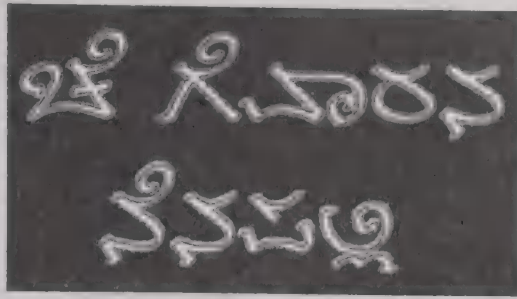 ಚೆ ಗೆವಾರನ
ನೆನಪಲ್ಲಿ